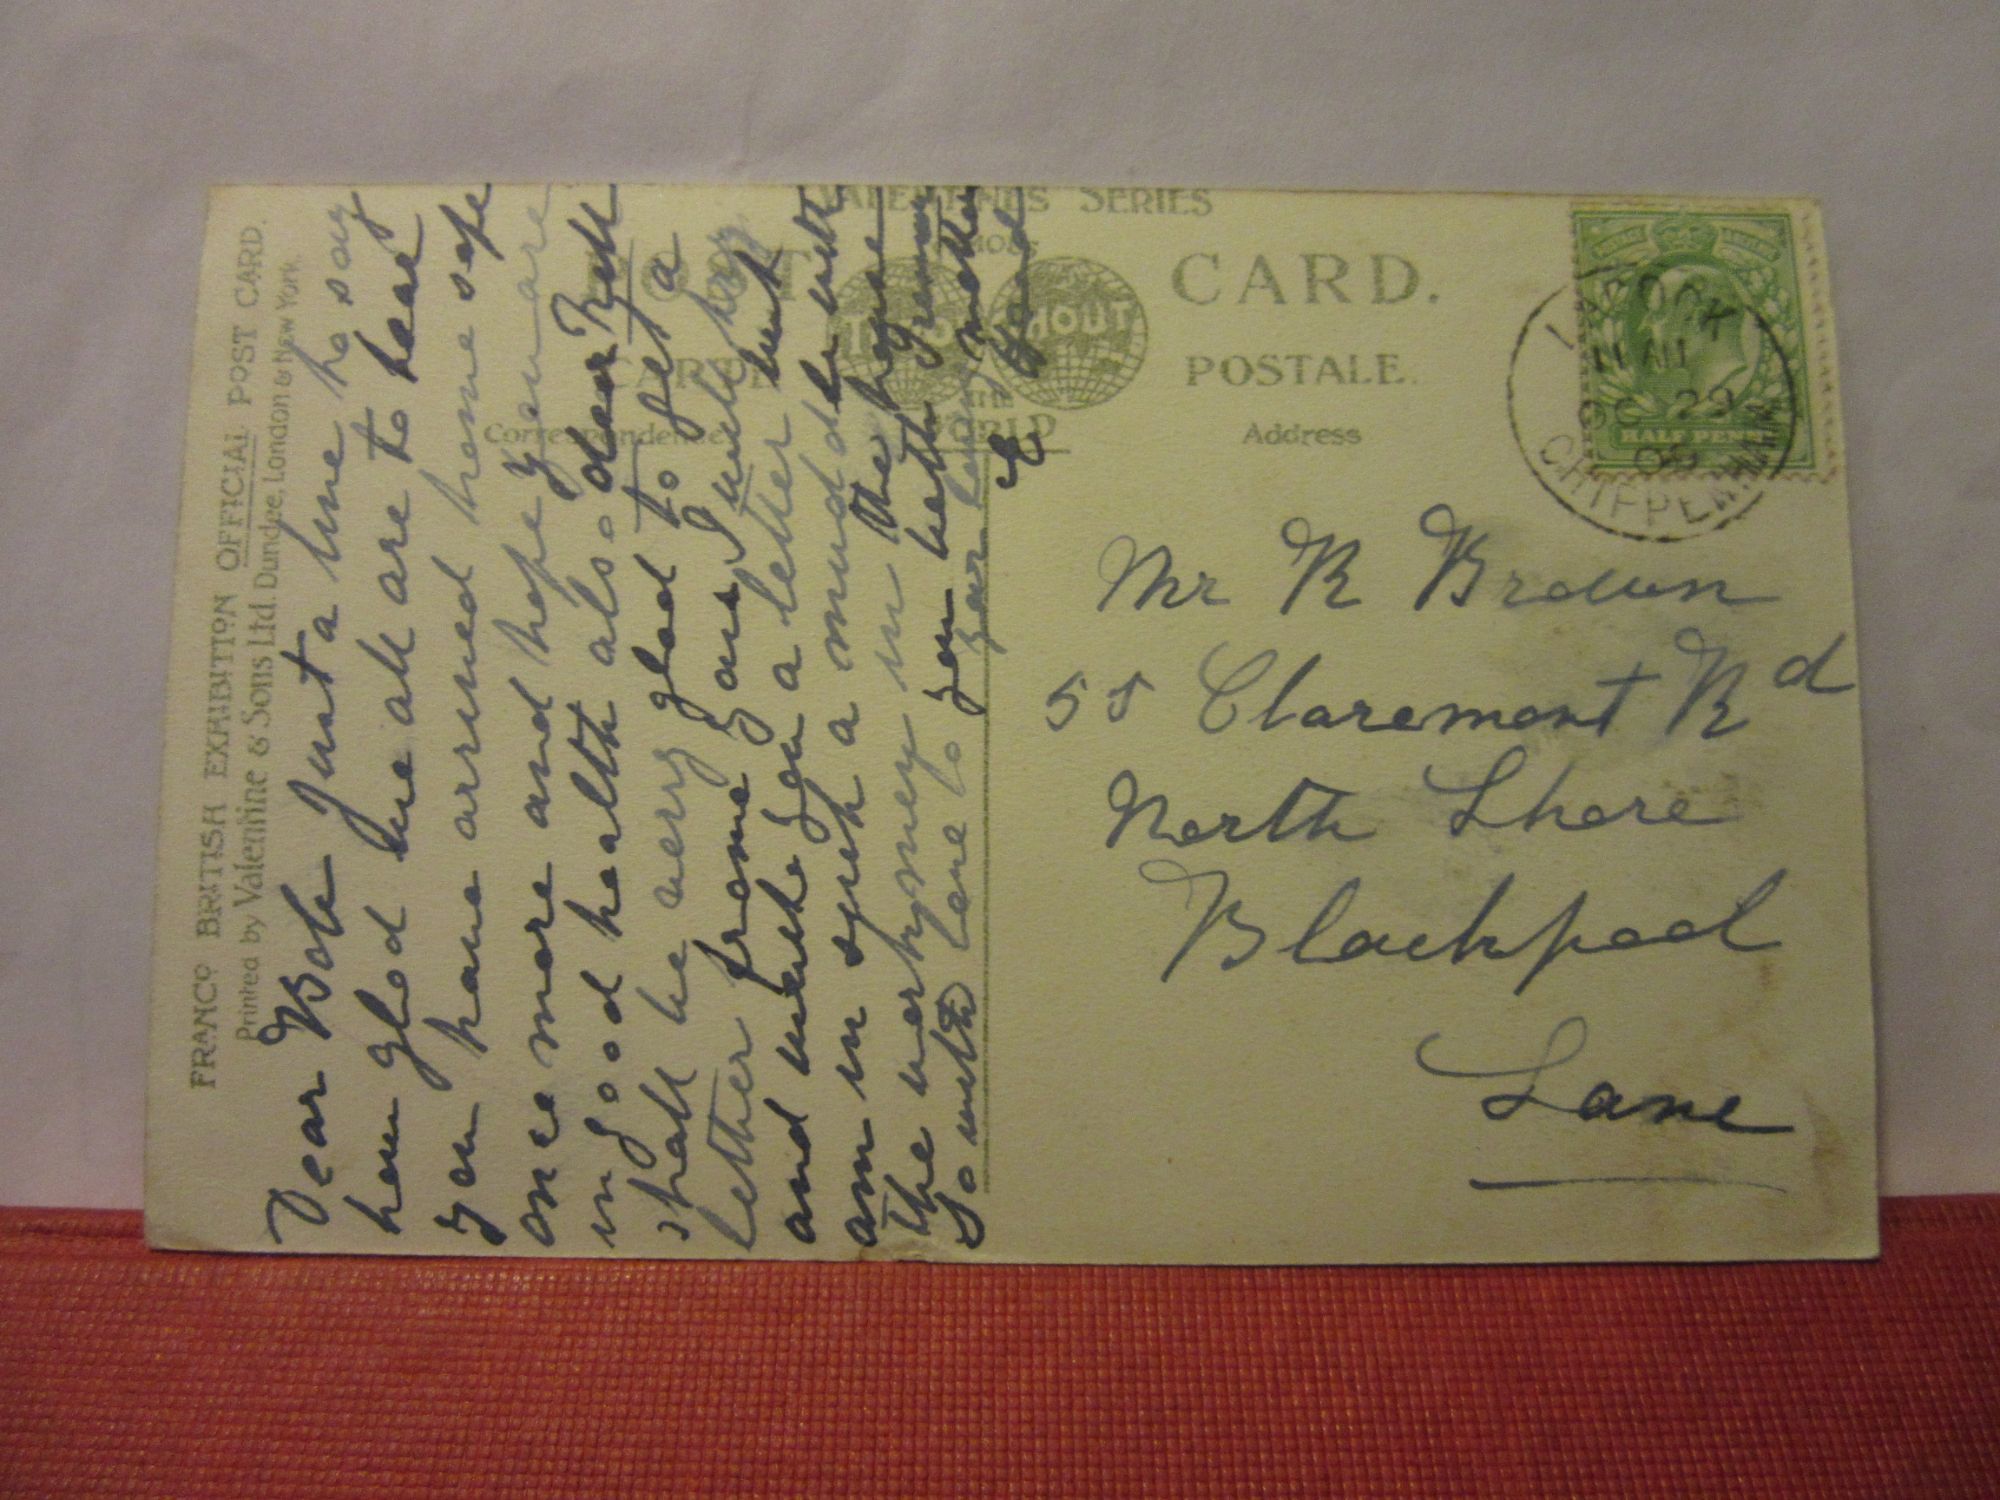 FRANCO BRITISH EXHIBITION OFFICIAL POST CARD.
Printed by Valentine & Sons Ltd. Dundee, London & New York.
VALENTINE'S SERIES
FAMOUS
THROUGHOUT
THE
WORLD
POST CARD.
CARTE POSTALE.
Correspondence
Address
HALF PENNY
LACOCK
11 AM
OC 29
08
CHIPPENHAM
Dear Bob Just a line to say
how glad we all are to hear
you have arrived home safe
once more and hope you are
in good health also dear Nell
shall be very glad to get a
letter from you, I will try
and write you a letter but
am in such a muddle with
the workmen in the house
So with love to you both
your loving mother
Mr R Brown
55 Claremont Rd
North Shore
Blackpool
Lanc